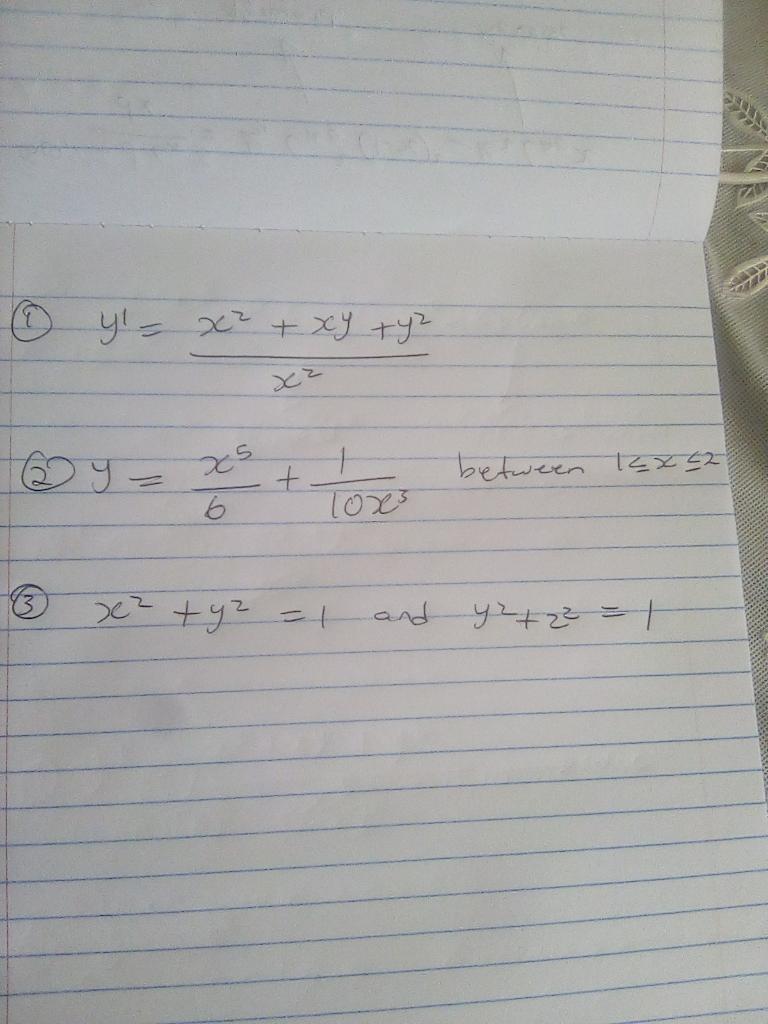 ① y' = (x² + xy + y²) / x²
② y = x⁵/6 + 1/(10x³) between 1≤x≤2
③ x² + y² = 1 and y² + z² = 1